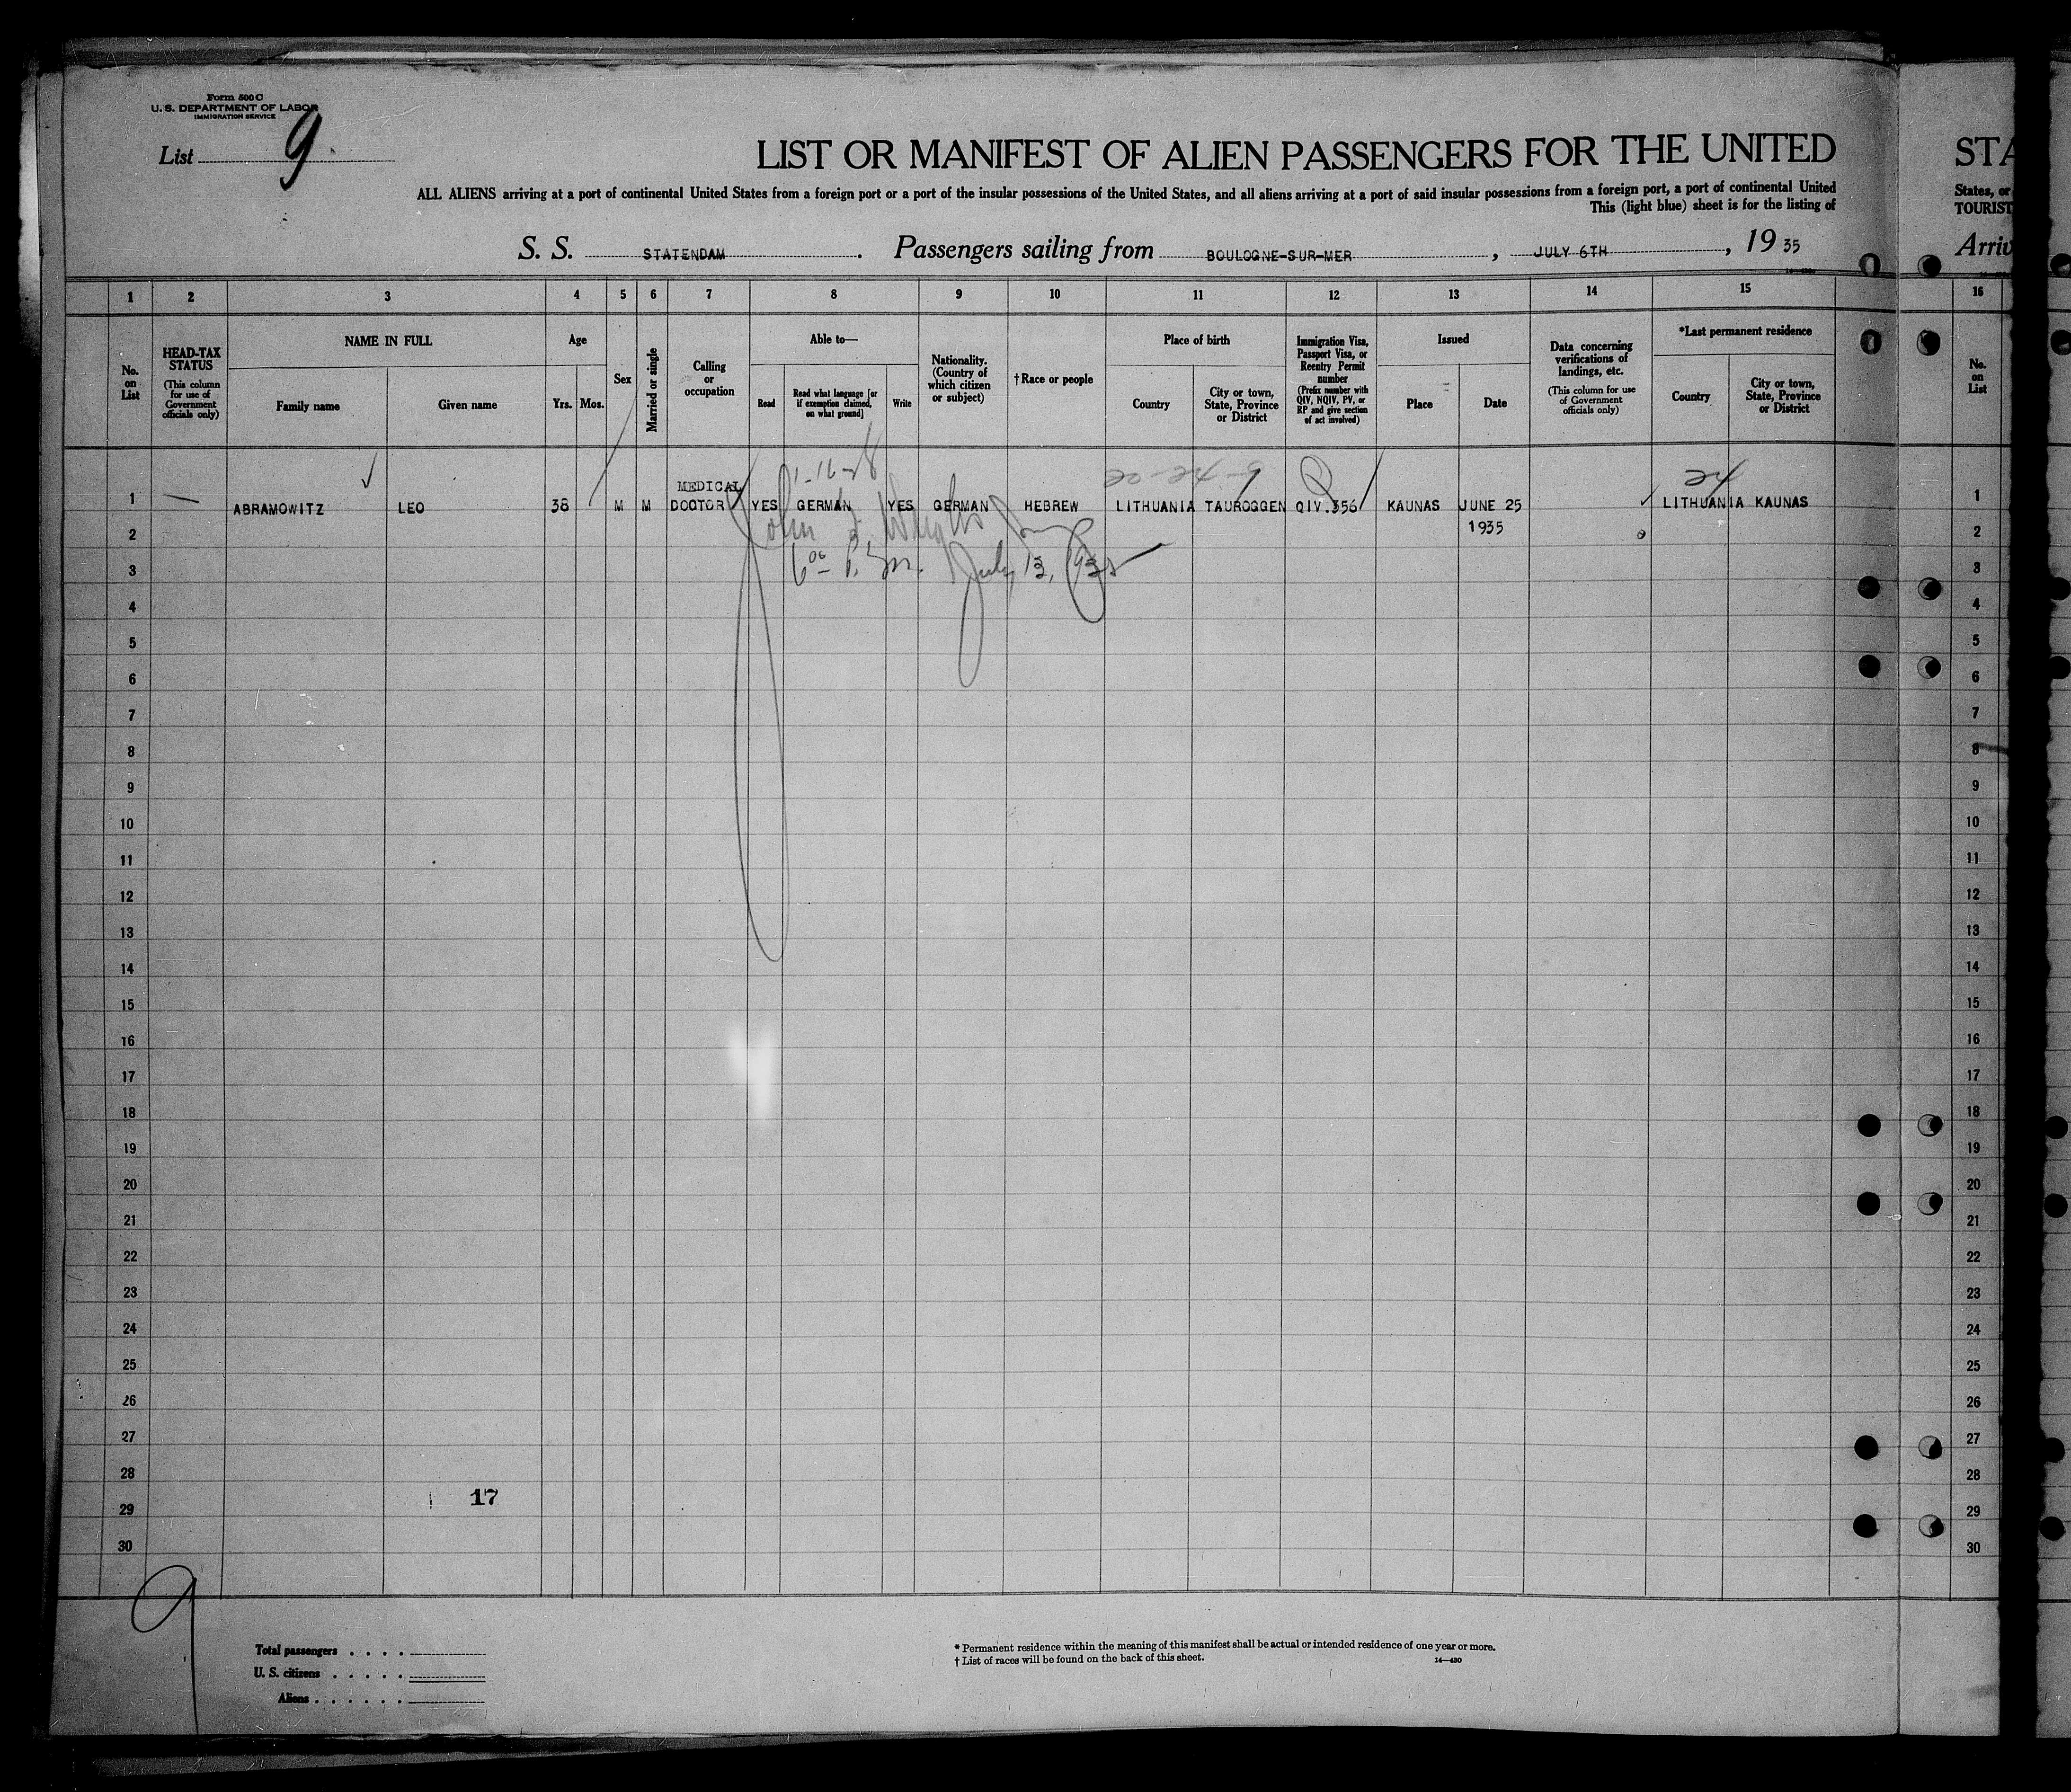 Form 500 C
U. S. DEPARTMENT OF LABOR
IMMIGRATION SERVICE
List 9
LIST OR MANIFEST OF ALIEN PASSENGERS FOR THE UNITED
ALL ALIENS arriving at a port of continental United States from a foreign port or a port of the insular possessions of the United States, and all aliens arriving at a port of said insular possessions from a foreign port, a port of continental United
This (light blue) sheet is for the listing of
STA
States, or
TOURIST
S. S. STATENDAM. Passengers sailing from BOULOGNE-SUR-MER, JULY 6TH, 1935
Arriv
1 2 3 4 5 6 7 8 9 10 11 12 13 14 15 16
No. on List
HEAD-TAX STATUS
(This column for use of Government officials only)
NAME IN FULL
Family name
Given name
Age
Yrs.
Mos.
Sex
Married or single
Calling or occupation
Able to—
Read
Read what language [or if exemption claimed, on what ground]
Write
Nationality. (Country of which citizen or subject)
†Race or people
Place of birth
Country
City or town, State, Province or District
Immigration Visa, Passport Visa, or Reentry Permit number
(Prefix number with QIV, NQIV, PV, or RP and give section of act involved)
Issued
Place
Date
Data concerning verifications of landings, etc.
(This column for use of Government officials only)
*Last permanent residence
Country
City or town, State, Province or District
No. on List
24
1 ABRAMOWITZ LEO 38 M M MEDICAL DOCTOR YES GERMAN YES GERMAN HEBREW LITHUANIA TAUROGGEN QIV.356 KAUNAS JUNE 25 1935 LITHUANIA KAUNAS 1
July 13, 1935
2 2
3 3
4 4
5 5
6 6
7 7
8 8
9 9
10 10
11 11
12 12
13 13
14 14
15 15
16 16
17 17
18 18
19 19
20 20
21 21
22 22
23 23
24 24
25 25
26 26
27 27
28 28
17
29 29
30 30
9
Total passengers . . . .
U. S. citizens . . . . .
Aliens . . . . . .
* Permanent residence within the meaning of this manifest shall be actual or intended residence of one year or more.
† List of races will be found on the back of this sheet.
14—430